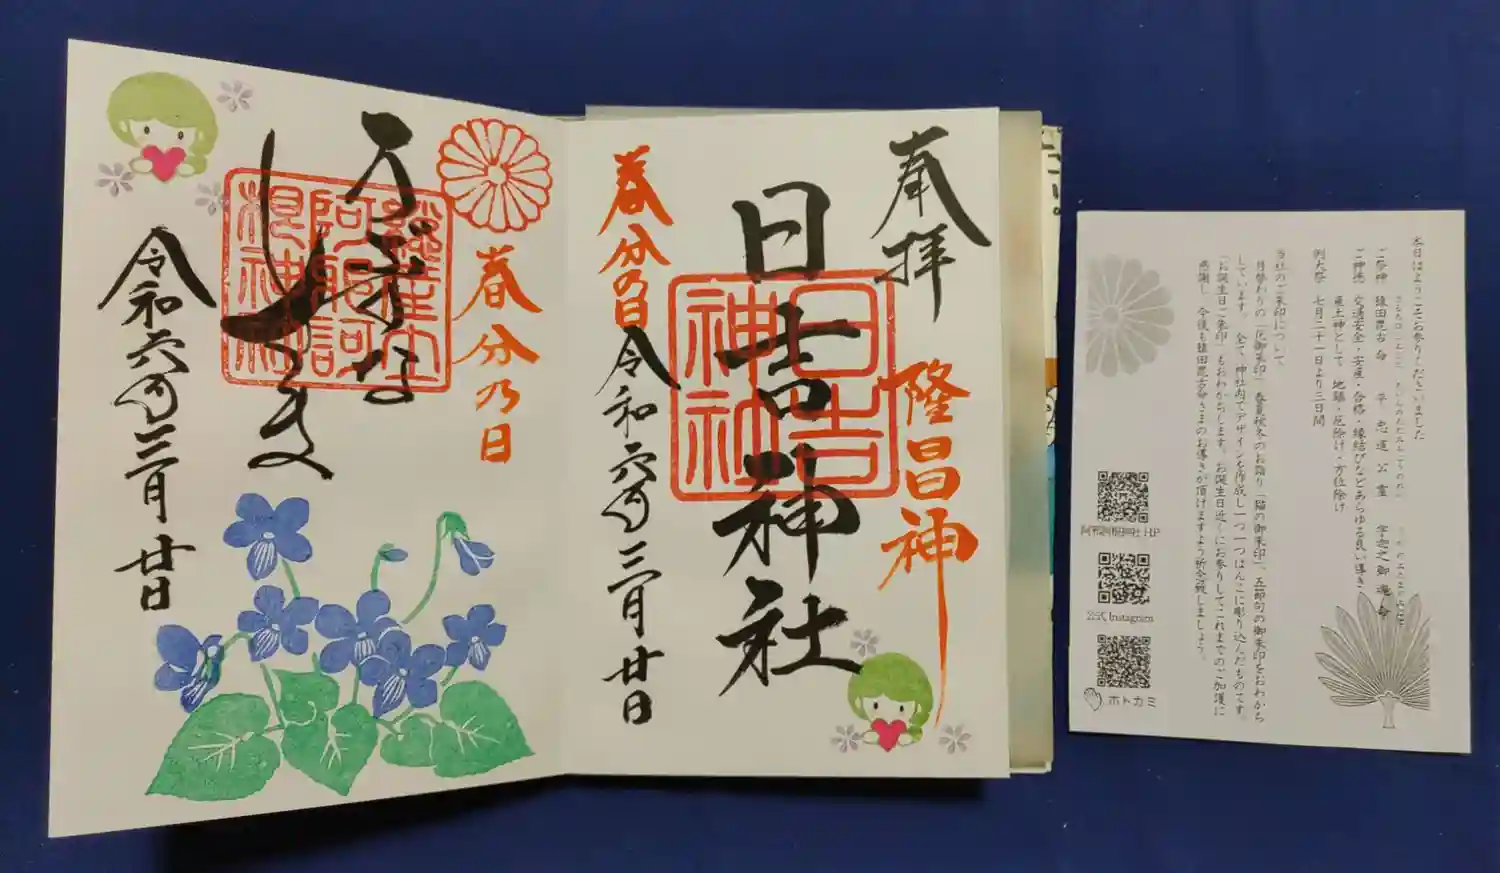 奉拝
隆昌神
日吉神社
日吉
神社
春分の日
令和六年三月廿日
春分乃日
うぶすな
總産土
阿邪訶
根神社
令和六年三月廿日
本日はようこそお参りくださいました
ご祭神 猿田毘古命 平忠道公霊 宇迦之御魂命
ご神徳 交通安全・安産・合格・縁結びなどあらゆる良い導き
産土神として 地鎮・厄除け・方位除け
例大祭 七月二十一日より三日間
当社のご朱印について
月替わりの「花御朱印」春夏秋冬のお詣り「猫の御朱印」、五節句の御朱印をおわかち
しています。 全て、神社内でデザインを作成し一つ一つはんこに彫り込んだものです。
「お誕生日ご朱印」もおわかちします。お誕生日近くにお参りして、これまでのご加護に
感謝し、今後も猿田毘古命さまのお導きが頂けますよう祈念致しましょう。
阿邪訶根神社HP
公式Instagram
ホトカミ